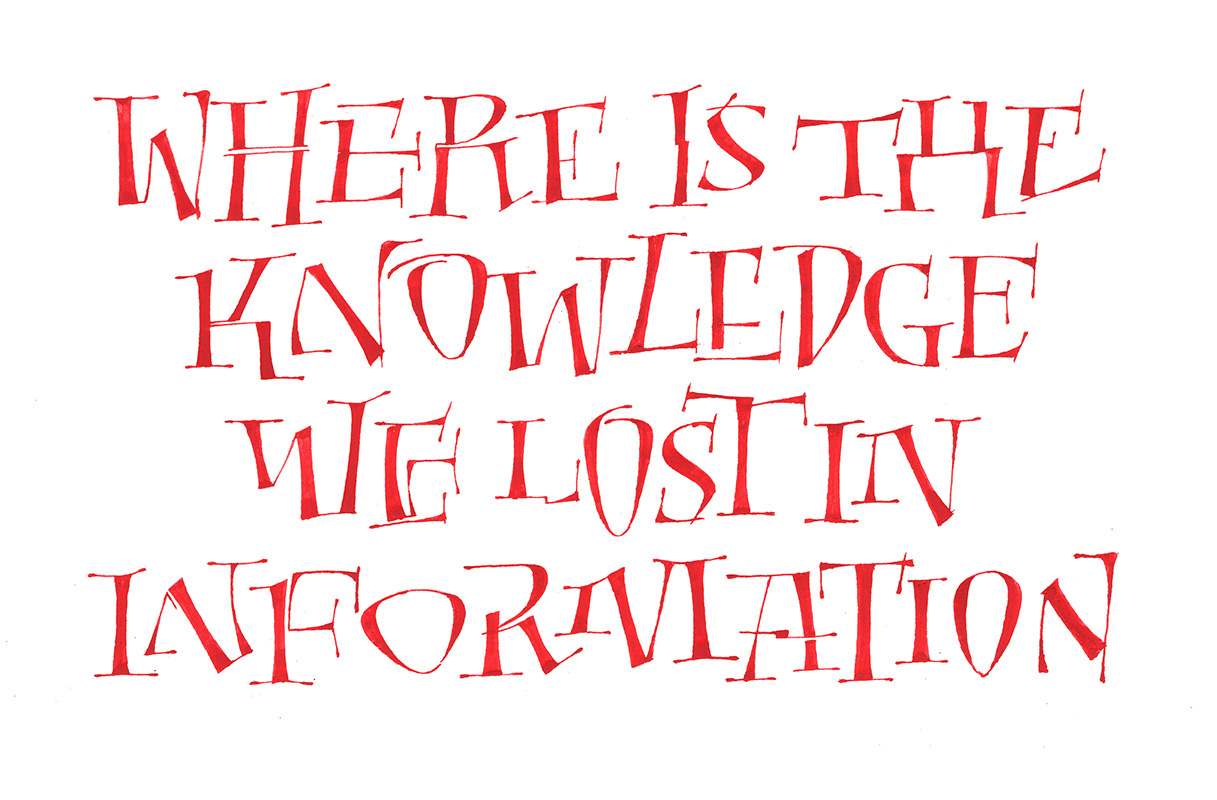 WHERE IS THE
KNOWLEDGE
WE LOST IN
INFORMATION